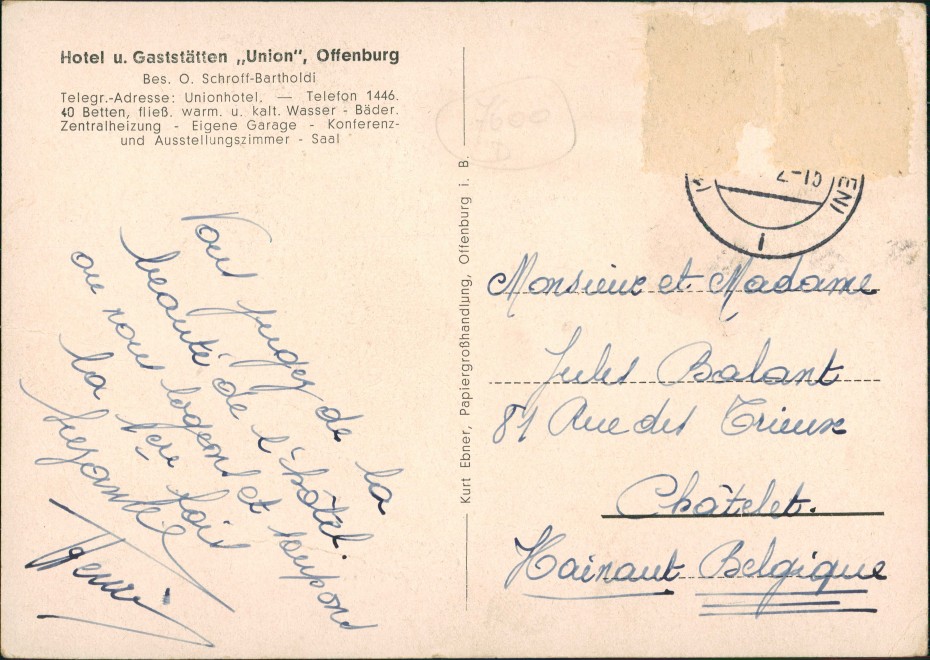 Hotel u. Gaststätten „Union“, Offenburg
Bes. O. Schroff-Bartholdi
Telegr.-Adresse: Unionhotel, — Telefon 1446.
40 Betten, fließ. warm. u. kalt. Wasser - Bäder.
Zentralheizung - Eigene Garage - Konferenz-
und Ausstellungszimmer - Saal
7600
D
Vous jugez de la
beauté de l'hôtel.
ou nous logeons et soupons
la 1ère fois
Henri
Kurt Ebner, Papiergroßhandlung, Offenburg i. B.
Monsieur et Madame
Jules Balant
81 Rue des Trieux
Châtelet.
Hainaut Belgique